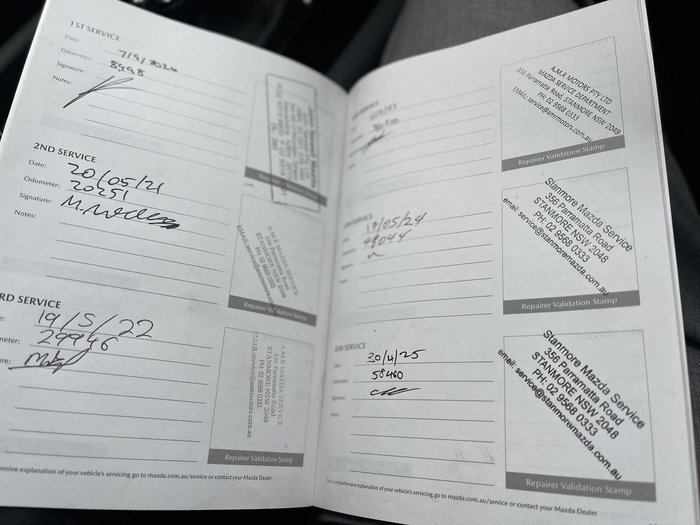 1ST SERVICE
Date: 7/9/2020
Odometer: 8998
Signature:
Notes:
Repairer Validation Stamp
2ND SERVICE
Date: 20/05/21
Odometer: 20251
Signature:
Notes:
A.M.R MAZDA SERVICE
356 Parramatta Road
STANMORE NSW 2048
PH: 02 9568 0333
EMAIL:service@amrmotors.com.au
Repairer Validation Stamp
RD SERVICE
19/5/22
meter: 29946
A.M.R MAZDA SERVICE
356 Parramatta Road
STANMORE NSW 2048
PH: 02 9568 0333
EMAIL:service@amrmotors.com.au
Repairer Validation Stamp
ensive explanation of your vehicle's servicing go to mazda.com.au/service or contact your Mazda Dealer
SERVICE
A.M.R MOTORS PTY LTD
MAZDA SERVICE DEPARTMENT
356 Parramatta Road, STANMORE NSW 2048
PH: 02 9568 0333
EMAIL: service@amrmotors.com.au
Repairer Validation Stamp
SERVICE
13/05/24
49044
Stanmore Mazda Service
356 Parramatta Road
STANMORE NSW 2048
PH: 02 9568 0333
email: service@stanmoremazda.com.au
Repairer Validation Stamp
6TH SERVICE
Date: 30/4/25
Odometer: 58460
Signature:
Notes:
Stanmore Mazda Service
356 Parramatta Road
STANMORE NSW 2048
PH: 02 9568 0333
email: service@stanmoremazda.com.au
Repairer Validation Stamp
For a comprehensive explanation of your vehicle's servicing go to mazda.com.au/service or contact your Mazda Dealer